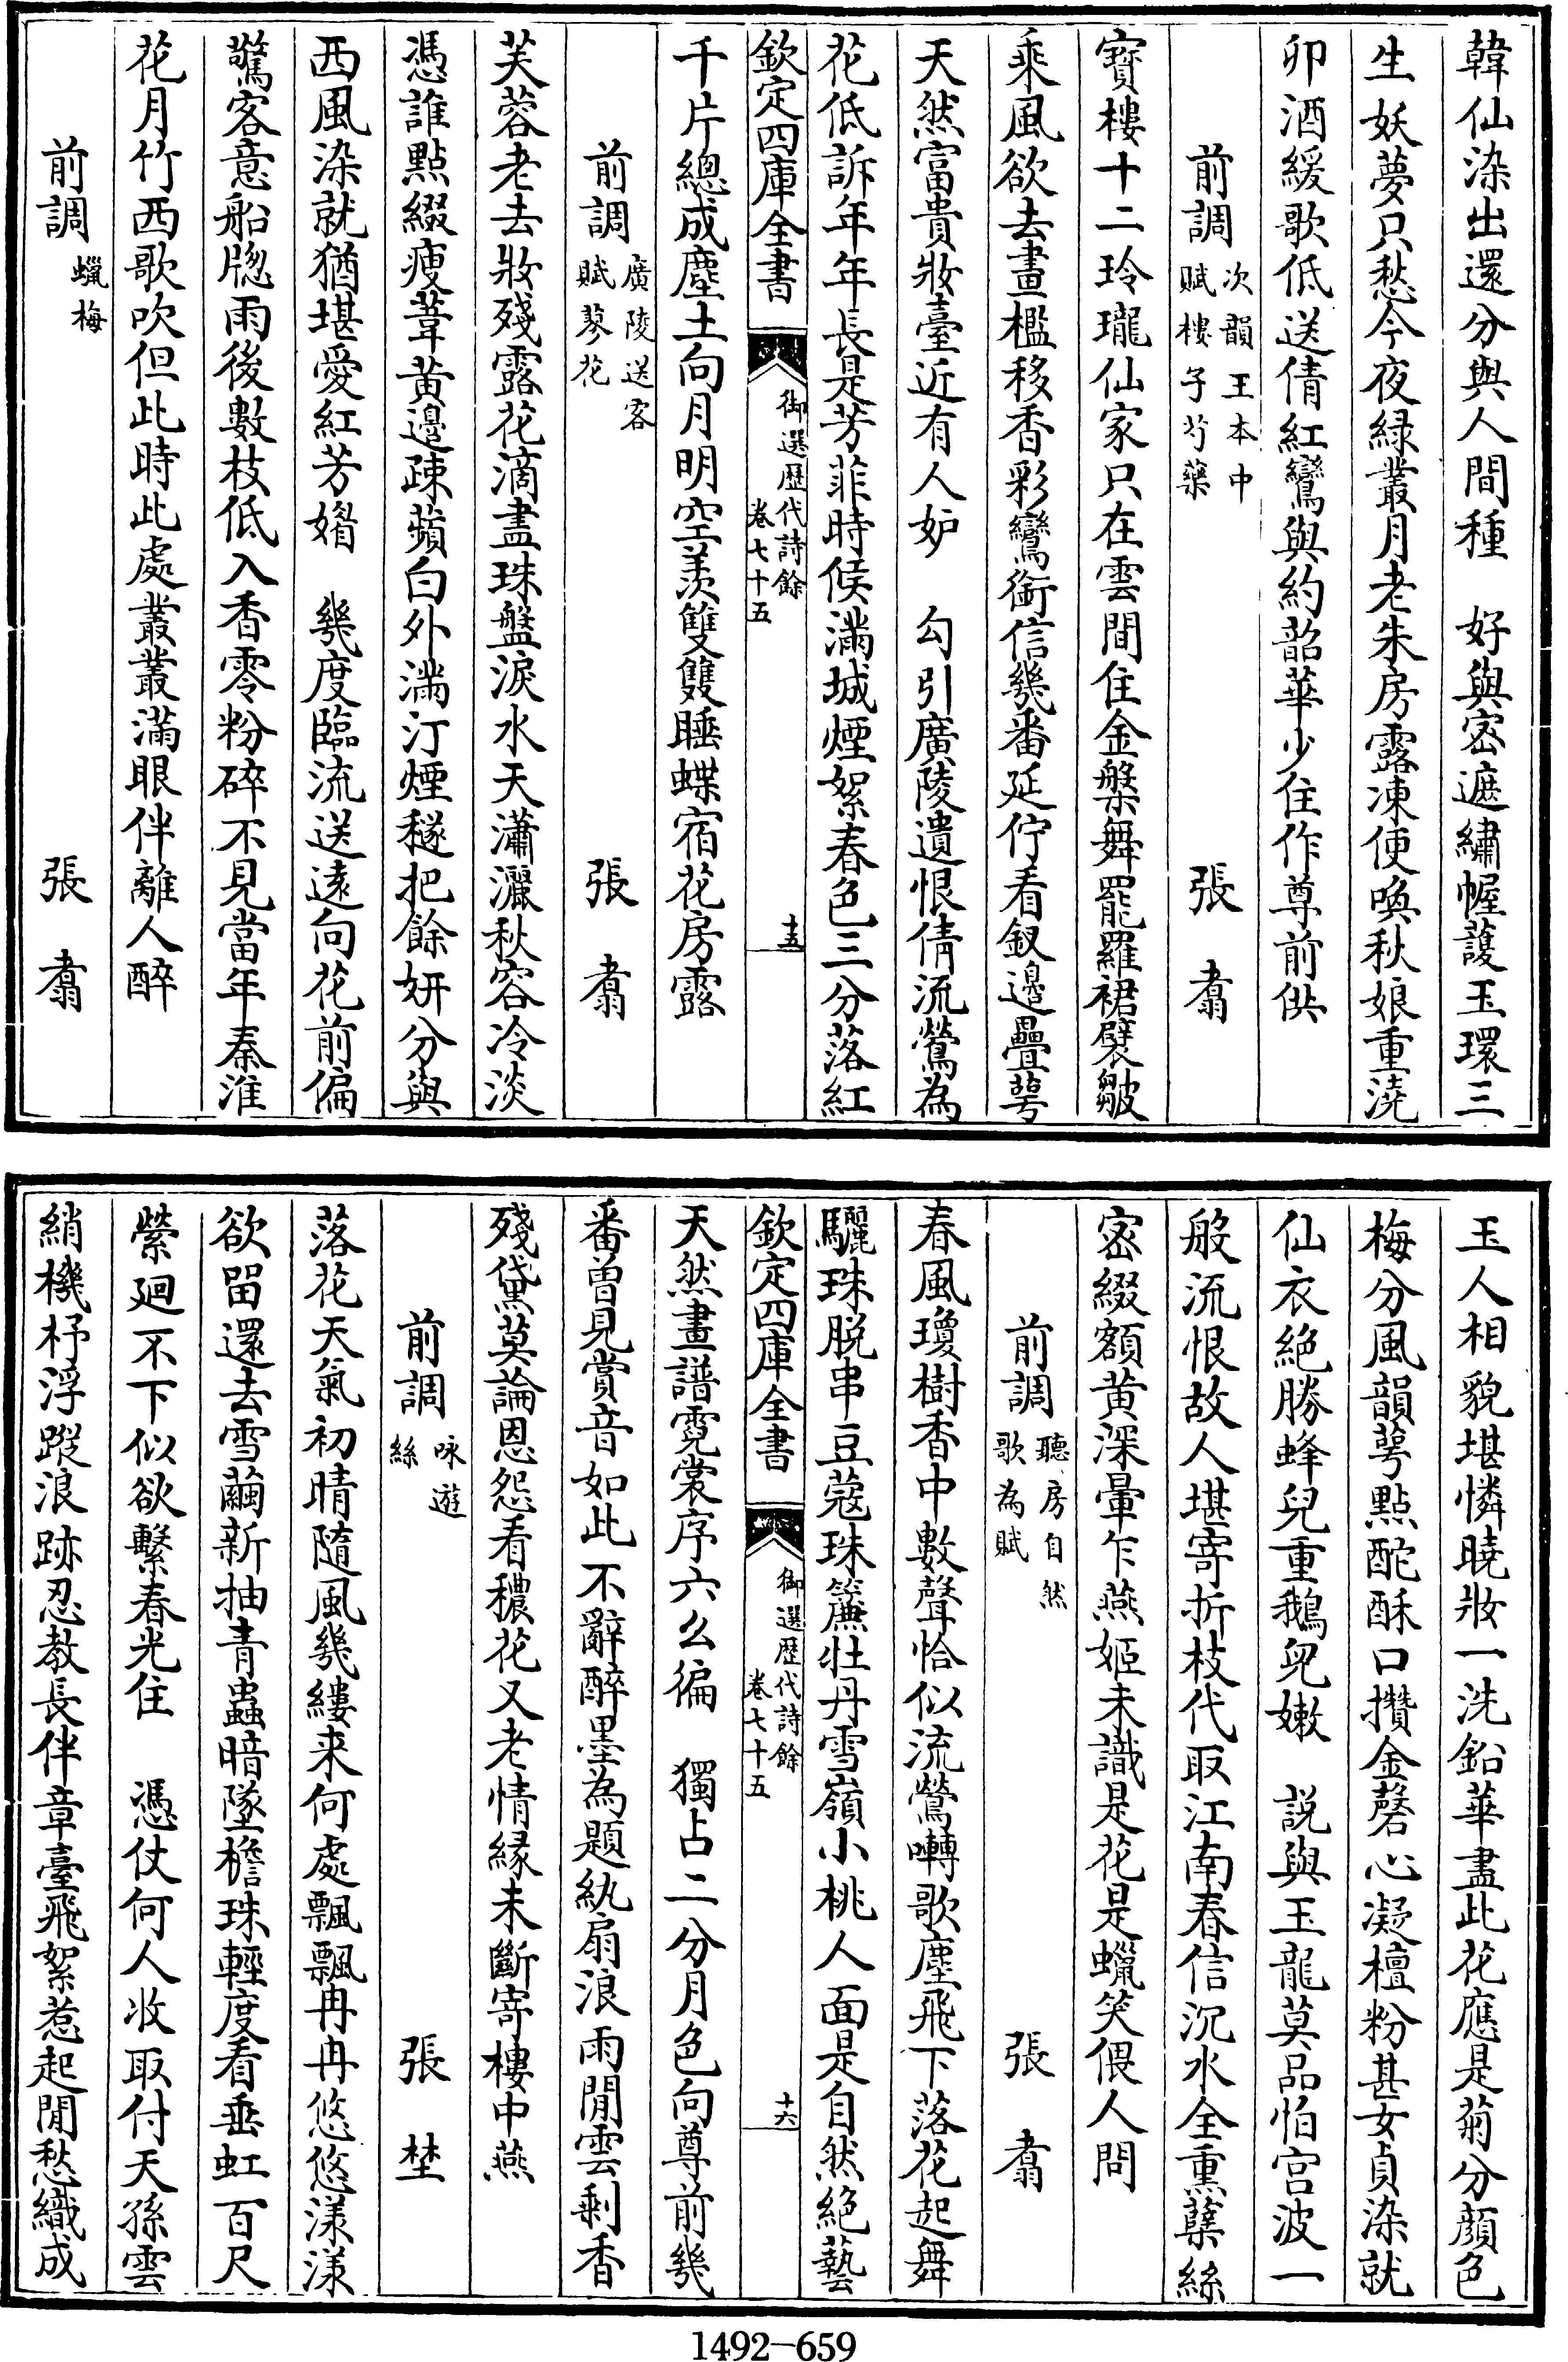 韓仙染出還分與人間種　好與密遮繡幄護玉環三
生妖夢只愁今夜緑叢月老朱房露凍使喚秋娘重澆
卯酒緩歌低送倩紅鸞與約韶華少住作尊前供
前調次韻王本中賦樓子芍藥　張翥
寳樓十二玲瓏仙家只在雲間住金槃舞罷羅裙襞皺
乘風欲去畫檻移香彩鸞銜信幾番延佇看釵邊疊萼
天然富貴妝臺近有人妒　勾引廣陵遺恨倩流鶯為
花低訴年年長是芳菲時候滿城煙絮春色三分落紅
欽定四庫全書　御選歴代詩餘　卷七十五　十五
千片總成塵土向月明空羨雙雙睡蝶宿花房露
前調廣陵送客賦蓼花　張翥
芙蓉老去妝殘露花滴盡珠盤淚水天瀟灑秋容冷淡
憑誰點綴瘦葦黄邉疎蘋白外滿汀煙穟把餘妍分與
西風染就猶堪愛紅芳媚　幾度臨流送逺向花前偏
驚客意船牎雨後數枝低入香零粉碎不見當年秦淮
花月竹西歌吹但此時此處叢叢滿眼伴離人醉
前調蠟梅　張翥
玉人相貌堪憐曉妝一洗鉛華盡此花應是菊分顔色
梅分風韻萼點酡酥口攢金磬心凝檀粉甚女貞染就
仙衣絶勝蜂兒重鵝兒嫩　説與玉龍莫品怕宫波一
般流恨故人堪寄折枝代取江南春信沉水全熏蘖絲
密綴額黄深暈乍燕姬未識是花是蠟笑偎人問
前調聽房自然歌為賦　張翥
春風瓊樹香中數聲恰似流鶯囀歌塵飛下落花起舞
驪珠脱串豆蔻珠簾牡丹雪嶺小桃人面是自然絶藝
欽定四庫全書　御選歴代詩餘　卷七十五　十六
天然畫譜霓裳序六么徧　獨占二分月色向尊前幾
番曽見賞音如此不辭醉墨為題紈扇浪雨閒雲剩香
殘黛莫論恩怨看穠花又老情緣未斷寄樓中燕
前調咏遊絲　張埜
落花天氣初晴隨風幾縷来何處飄飄冉冉悠悠漾漾
欲留還去雪繭新抽青蟲暗墜檐珠輕度看垂虹百尺
縈迴不下似欲繫春光住　憑仗何人收取付天孫雲
綃機杼浮蹤浪跡忍教長伴章臺飛絮惹起閒愁織成
1492-659